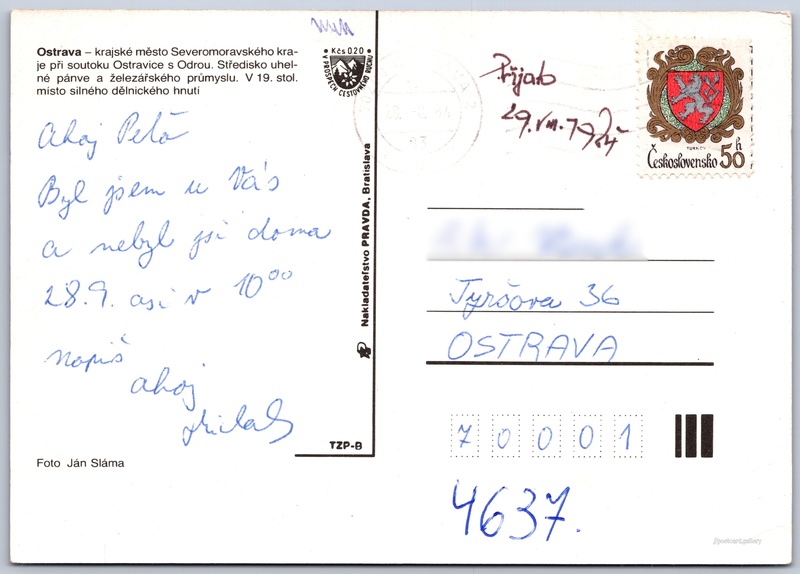 Ostrava – krajské město Severomoravského kra-
je při soutoku Ostravice s Odrou. Středisko uhel-
né pánve a železářského průmyslu. V 19. stol.
místo silného dělnického hnutí
Kčs 020
V PROSPĚCH CESTOVNÉHO RUCHU
Ahoj Petö
Byl jsem u Vás
a nebyl jsi doma
28.9. asi v 10⁰⁰
napiš
ahoj
TZP-B
Foto Ján Sláma
Nakladateľstvo PRAVDA, Bratislava
Přijato
29.VIII.79
Československo 50 h
Tyršova 36
OSTRAVA
70001
4637.
postcard.gallery